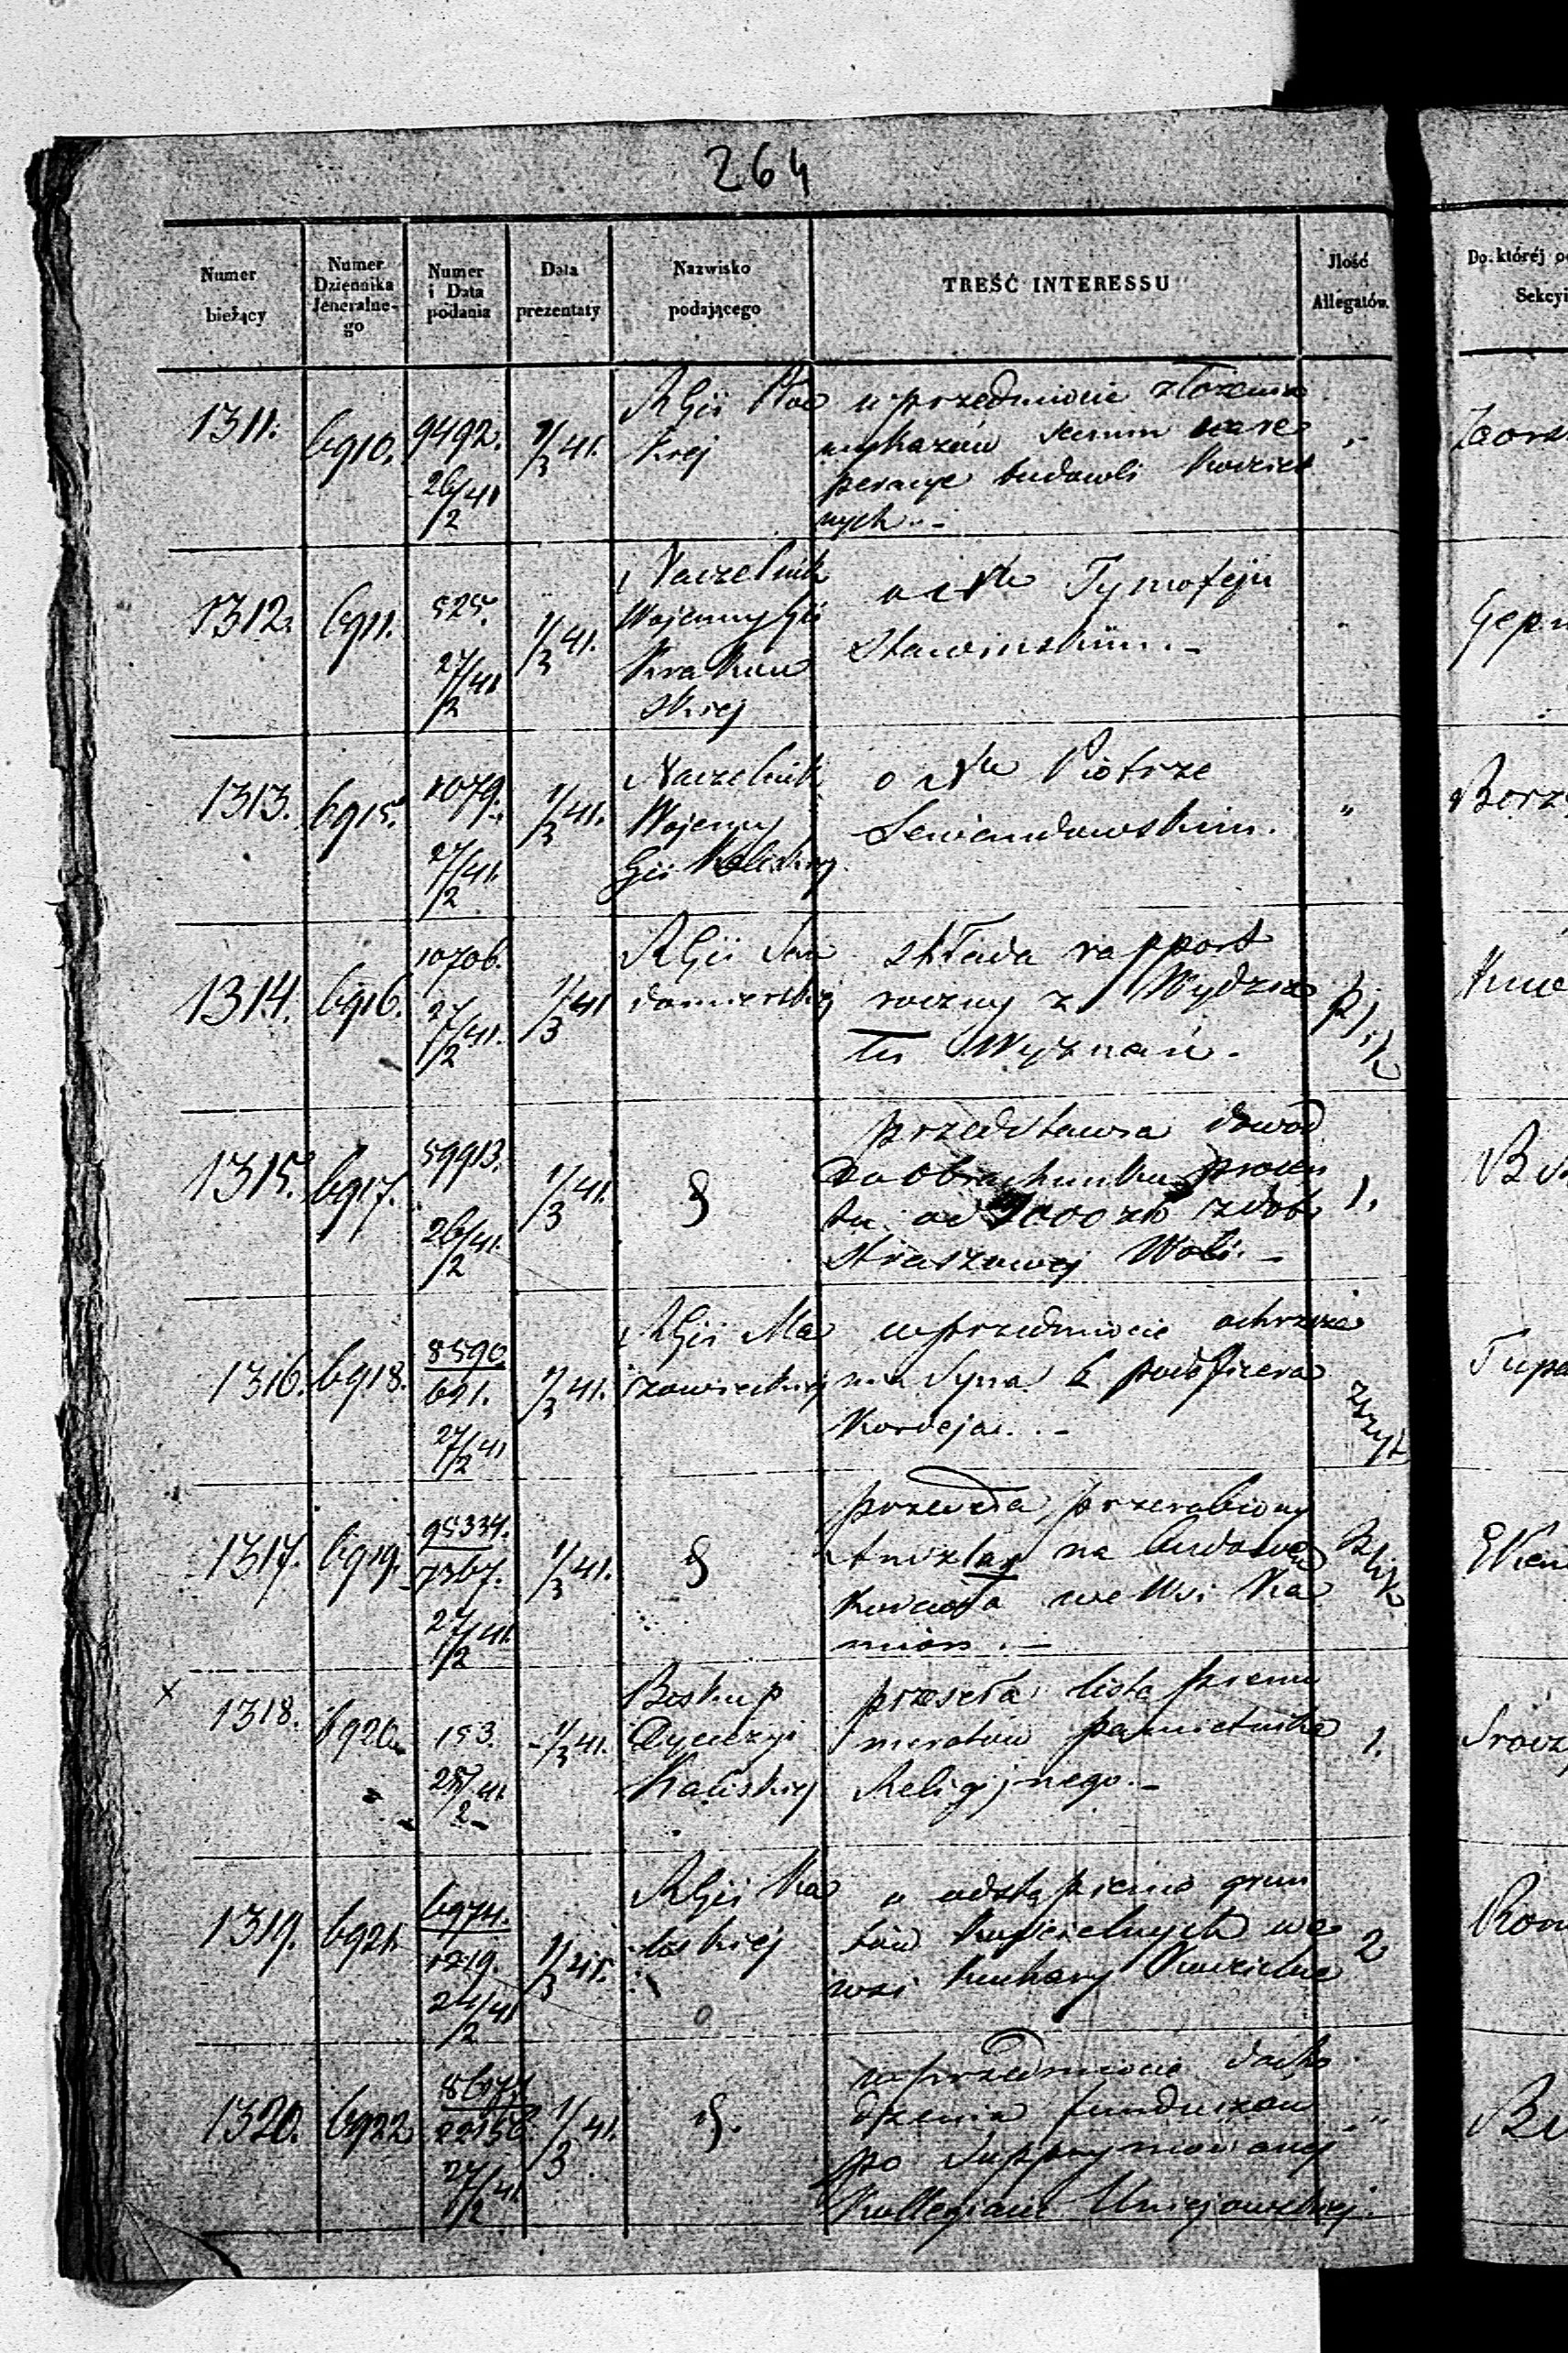 264
Numer bieżący
Numer Dziennika Jeneralne-go
Numer i Data podania
Data prezentaty
Nazwisko podającego
TREŚĆ INTERESSU
Jlość Allegatów.
Do któréj
Sekcyi
1311. 6910. 9492. 26/2 41 1/3 41.
w przedmiocie złożenia
wykazów summ na re
peracye budowli Kościel
nych.-
1312. 6911. 525. 27/2 41 1/3 41.
Naczelnik
Wojenny Gii
Krakow
skiej
Tymofeju
Sławinskim.-
1313. 6915. 1079. 27/2 41. 1/3 41.
Naczelnik
Wojenny
Gii Kaliskiej
o Piotrze
Lewandowskim.
"
1314. 6916. 10706. 27/2 41. 1/3 41
RGii San
domierskiej
składa rapport
roczny z Wydzia
łu Wyznań.
plik
1315. 6917. 59913. 26/2 41. 1/3 41.
§
przedstawia dowod
do obrachunku procen
tu od 9000 zł z dobr
Straszowej Woli.-
1.
1316. 6918. 8590/691. 27/2 41 1/3 41.
RGii Ma
zowieckiej
w przedmiocie ochrzcze
nia Syna podoficera
Kordeja.-
zszyt
1317. 6919. 95334./7367. 27/2 41. 1/3 41.
§
przerobiony
Anszlag na budowę
Kościoła we Wsi Ka
mion.-
Plik
x
1318. 6920. 153. 1/3 41.
Biskup
Dyecezyi
Kaliskiej
przeseła listę prenu
meratów pamietnika
Religijnego.-
1.
1319. 6921. 6974./1219. 24/2 41 1/3 41.
RGii Ka
liskiej
o odstąpienie grun
tów Kościelnych we
wsi Kuchary Kościelne
2
1320. 6922 27/2 41. 1/3 41.
§.
w przedmiocie docho
dzenia funduszow
po Supprymowanej
Kollegiacie Uniejowskiej.
"